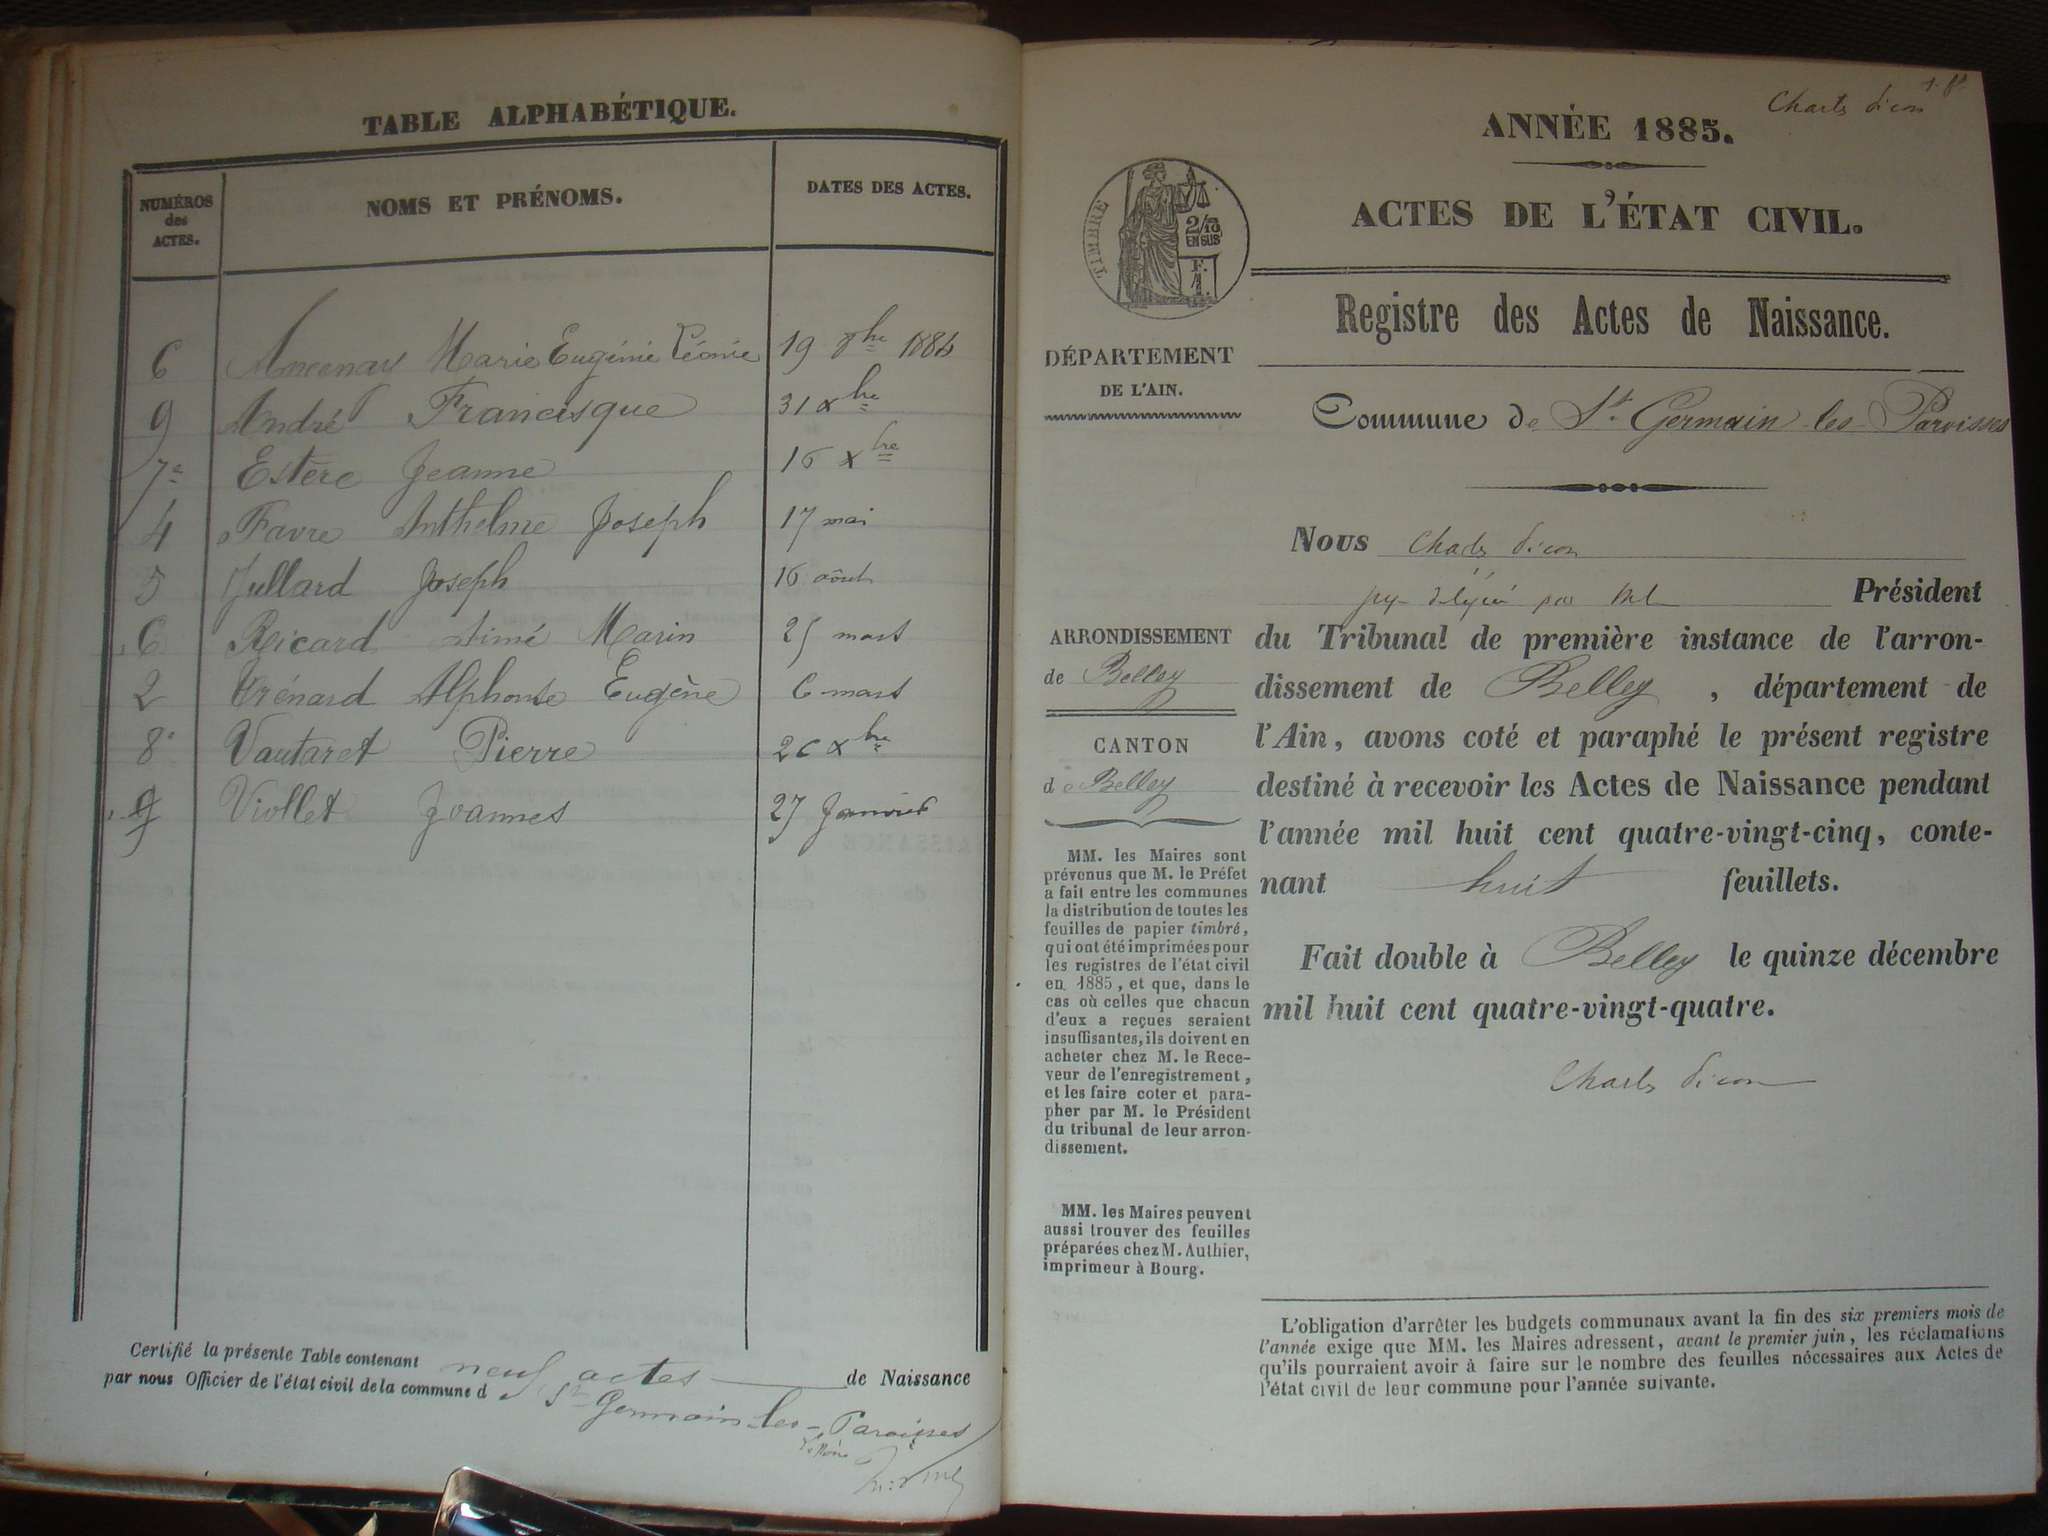 TABLE ALPHABÉTIQUE.
NUMÉROS
des
ACTES.
NOMS ET PRÉNOMS.
DATES DES ACTES.
6 Marie Eugénie Léonie 19 8bre 1884
9 André Francisque 31 xbre
7e Estère Jeanne 16 xbre
4 Favre Anthelme Joseph 17 mai
5 Jullard Joseph 16 août
6 Ricard Aimé Marin 25 mars
2 Trénard Alphonse Eugène 6 mars
8e Vautaret Pierre 26 xbre
Viollet Joannes 27 Janvier
Certifié la présente Table contenant neuf actes de Naissance
par nous Officier de l'état civil de la commune d St Germain-les-Paroisses
ANNÉE 1885.
ACTES DE L'ÉTAT CIVIL.
TIMBRE
2/10
EN SUS
F.
1.
Registre des Actes de Naissance.
DÉPARTEMENT
DE L'AIN.
Commune de St Germain-les-Paroisses
Nous
juge délégué par Président
ARRONDISSEMENT
de Belley
CANTON
de Belley
du Tribunal de première instance de l'arron-
dissement de Belley, département de
l'Ain, avons coté et paraphé le présent registre
destiné à recevoir les Actes de Naissance pendant
l'année mil huit cent quatre-vingt-cinq, conte-
nant huit feuillets.
Fait double à Belley le quinze décembre
mil huit cent quatre-vingt-quatre.
MM. les Maires sont
prévenus que M. le Préfet
a fait entre les communes
la distribution de toutes les
feuilles de papier timbré,
qui ont été imprimées pour
les registres de l'état civil
en 1885, et que, dans le
cas où celles que chacun
d'eux a reçues seraient
insuffisantes, ils doivent en
acheter chez M. le Rece-
veur de l'enregistrement,
et les faire coter et para-
pher par M. le Président
du tribunal de leur arron-
dissement.
MM. les Maires peuvent
aussi trouver des feuilles
préparées chez M. Authier,
imprimeur à Bourg.
L'obligation d'arrêter les budgets communaux avant la fin des six premiers mois de
l'année exige que MM. les Maires adressent, avant le premier juin, les réclamations
qu'ils pourraient avoir à faire sur le nombre des feuilles nécessaires aux Actes de
l'état civil de leur commune pour l'année suivante.